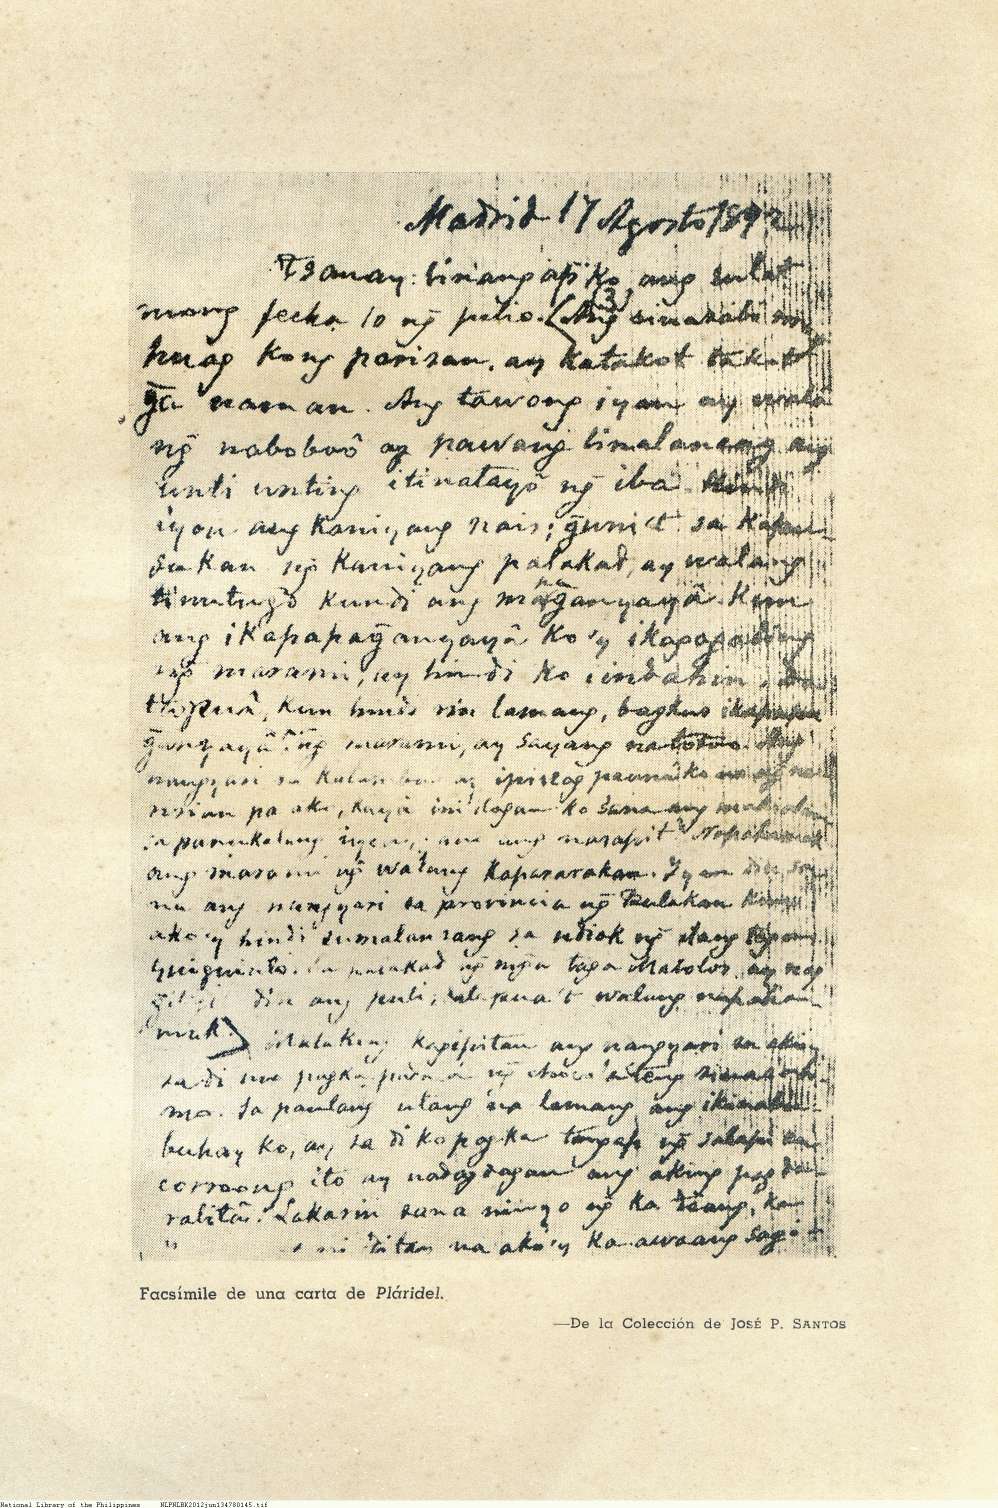 Madrid 17 Agosto 1892
Tsanay: tinangap ko ang sulat
mong fecha 10 ng̃ julio. (3) Ang sinasabi mong
huag kong parisan, ay katakot takot
g̃a naman. Ang tawong iyan ay walâ
ng̃ naboboô ay pawang tinalansang ang
unti unting itinatayô ng̃ iba. Hindi
iyon ang kaniyang nais; g̃uni't sa kapan-
dukan ng̃ kaniyang palakad, ay walang
tinutung̃o kundi ang mapag̃anyayâ. Kun
ang ikapapag̃anyayâ ko'y ikagagaling
ng̃ marami, ay hindi ko iindahin.
kun hindi rin lamang, bagkus ikapapa
g̃anyayâ ng̃ marami, ay sayang na totoo. Ang
nangyari sa Kalamba ay ipinag paunâ ko na ng̃ na
ririan pa ako, kayâ inilagan ko sana ang
sa panukalang iyan; ano ang nasapit? Napahamak
ang marami ng̃ walang kapararakan. Iyan din sa
na ang nangyari sa provincia ng̃ Bulakan kundi
ako'y hindi sumalansang sa udiok ng̃ ilang taga
Guiguinto. Sa palakad ng̃ mg̃a taga Malolos, ay nag
din ang puri, at walang napaha-
mak.) Malaking kagipitan ang nangyari sa aking
sa di mo pagka padala ng̃ ating
mo. Sa paulang utang na lamang ang ikinabu-
buhay ko, ay sa di ko pagka tangap ng̃ salapi sa
correong ito ay nadagdagan ang aking pag da-
ralitâ. Lakarin sana ninyo ng̃ ka
na ako'y ka awaang
Facsímile de una carta de Pláridel.
—De la Colección de JOSÉ P. SANTOS
National Library of the Philippines NLPNLBK2012jun134780145.tif